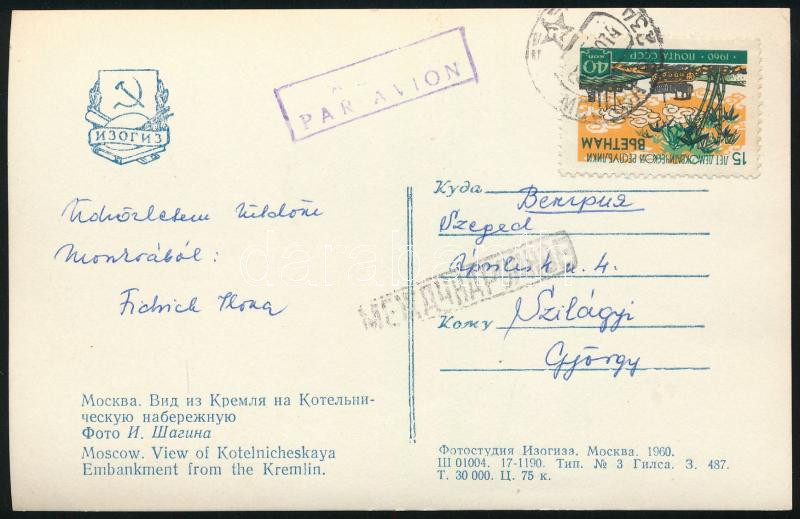 PAR AVION
ИЗОГИЗ
1960 ПОЧТА СССР
40 КОП
15 ЛЕТ ДЕМОКРАТИЧЕСКОЙ РЕСПУБЛИКИ
ВЬЕТНАМ
Üdvözletem küldöm
Moszkvából:
Куда Венгрия
Szeged
Április 4. u. 4.
МЕЖДУНАРОДНОЕ
Кому Szilágyi
György
Москва. Вид из Кремля на Котельни-
ческую набережную
Фото И. Шагина
Moscow. View of Kotelnicheskaya
Embankment from the Kremlin.
Фотостудия Изогиза. Москва. 1960.
Ш 01004. 17-1190. Тип. № 3 Гилса. З. 487.
Т. 30 000. Ц. 75 к.